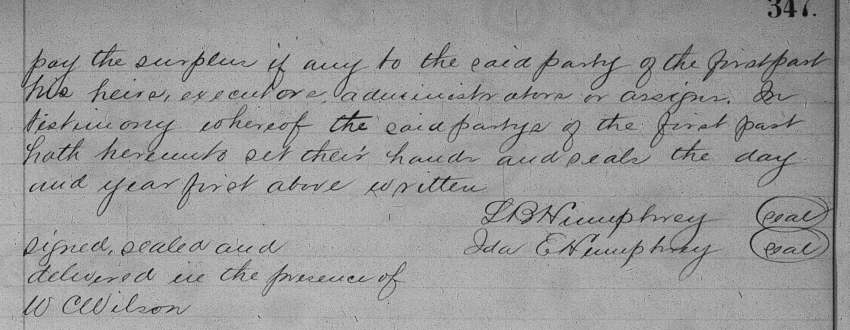 347.
pay the surplus if any to the said party of the first part
his heirs, executors, administrators or assigns. In
testimony whereof the said partys of the first part
hath hereunto set their hands and seals the day
and year first above written
L B Humphrey (seal)
signed, sealed and Ida E Humphrey (seal)
delivered in the presence of
W C Wilson